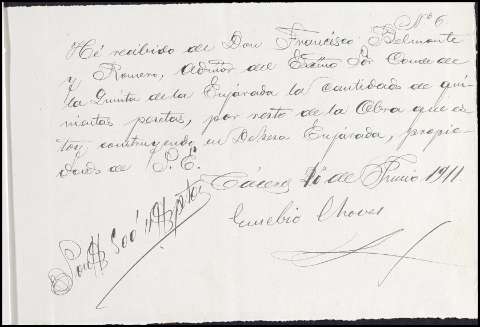 Nº 6
Hé recibido de Don Francisco Belmonte
y Romero, Admor del Exmo Sor Conde de
la Quinta de la Enjarada la cantidad de qui-
nientas pesetas, por resto de la Obra que es
toy construyendo en Dehesa Enjarada, propie-
dad de S. E.
Cáceres 1º de Junio 1911
Eusebio Chaves
Son # 500 " # ptas